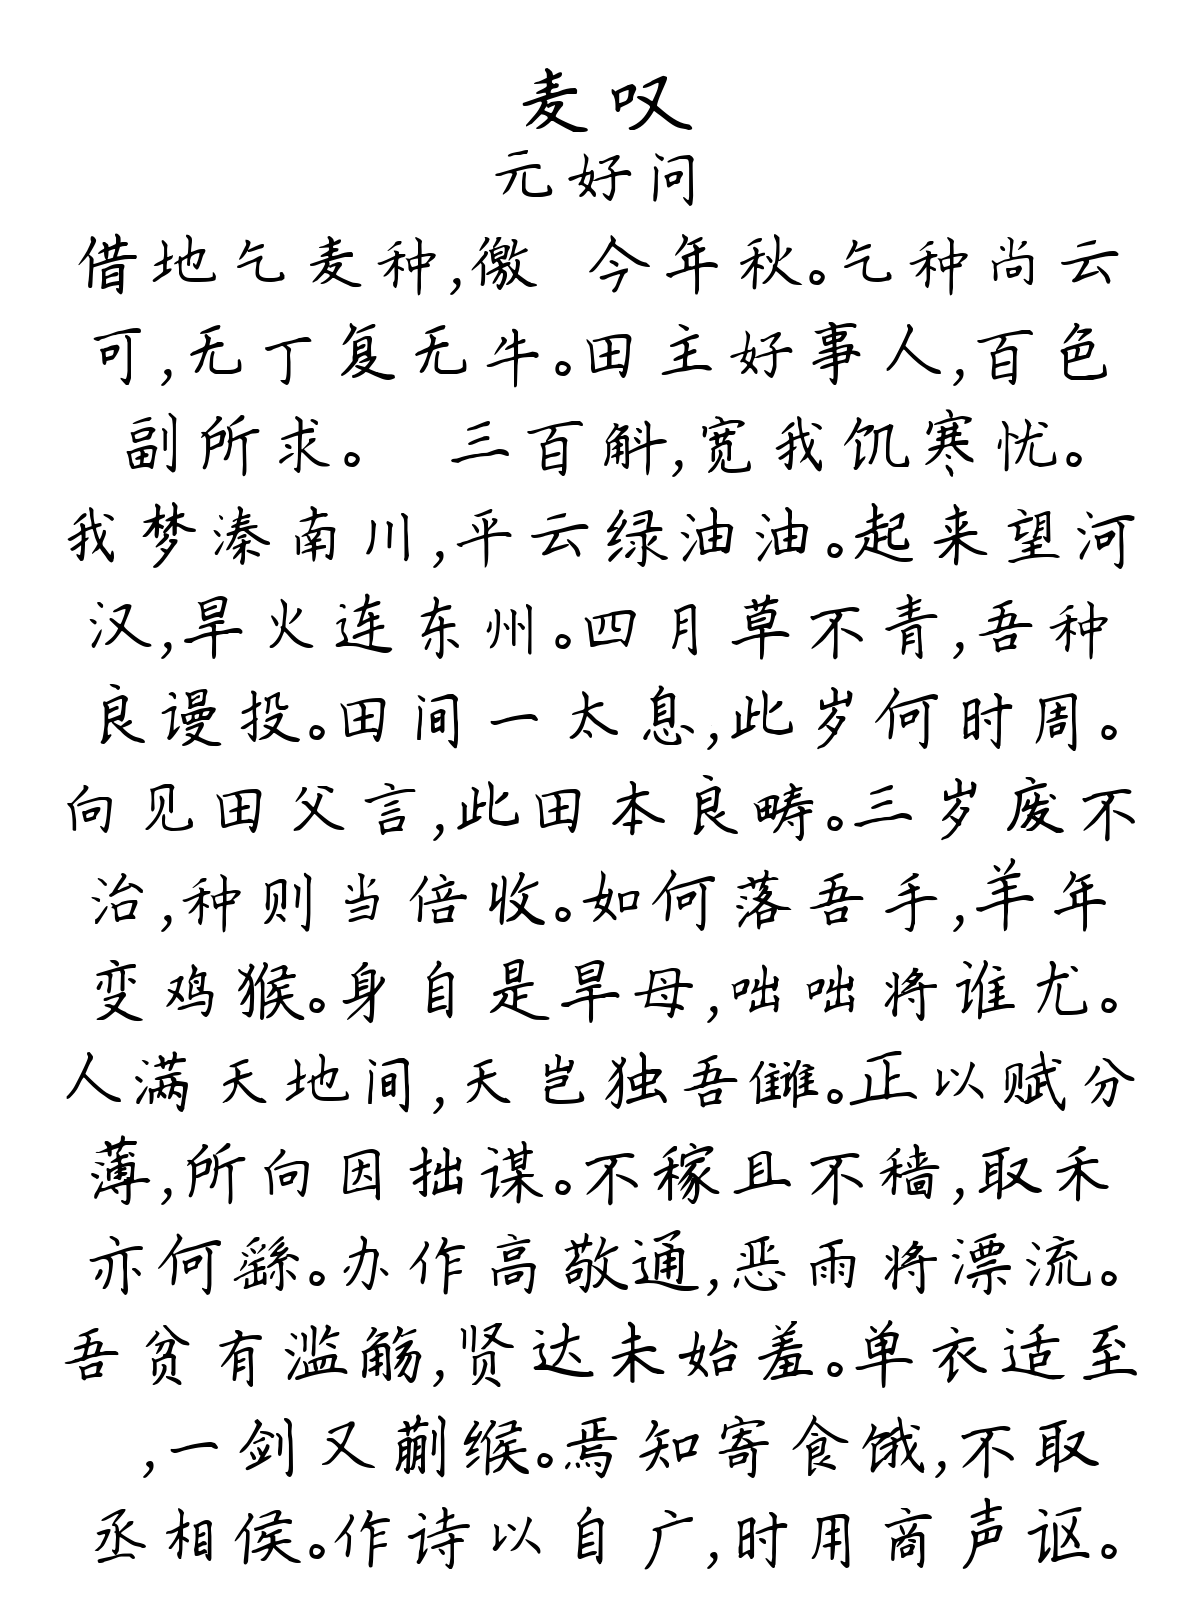 麦叹
元好问
借地乞麦种,徼 今年秋。乞种尚云
可,无丁复无牛。田主好事人,百色
副所求。 三百斛,宽我饥寒忧。
我梦溱南川,平云绿油油。起来望河
汉,旱火连东州。四月草不青,吾种
良谩投。田间一太息,此岁何时周。
向见田父言,此田本良畴。三岁废不
治,种则当倍收。如何落吾手,羊年
变鸡猴。身自是旱母,咄咄将谁尤。
人满天地间,天岂独吾雠。正以赋分
薄,所向因拙谋。不稼且不穑,取禾
亦何繇。办作高敬通,恶雨将漂流。
吾贫有滥觞,贤达未始羞。单衣适至
,一剑又蒯缑。焉知寄食饿,不取
丞相侯。作诗以自广,时用商声讴。